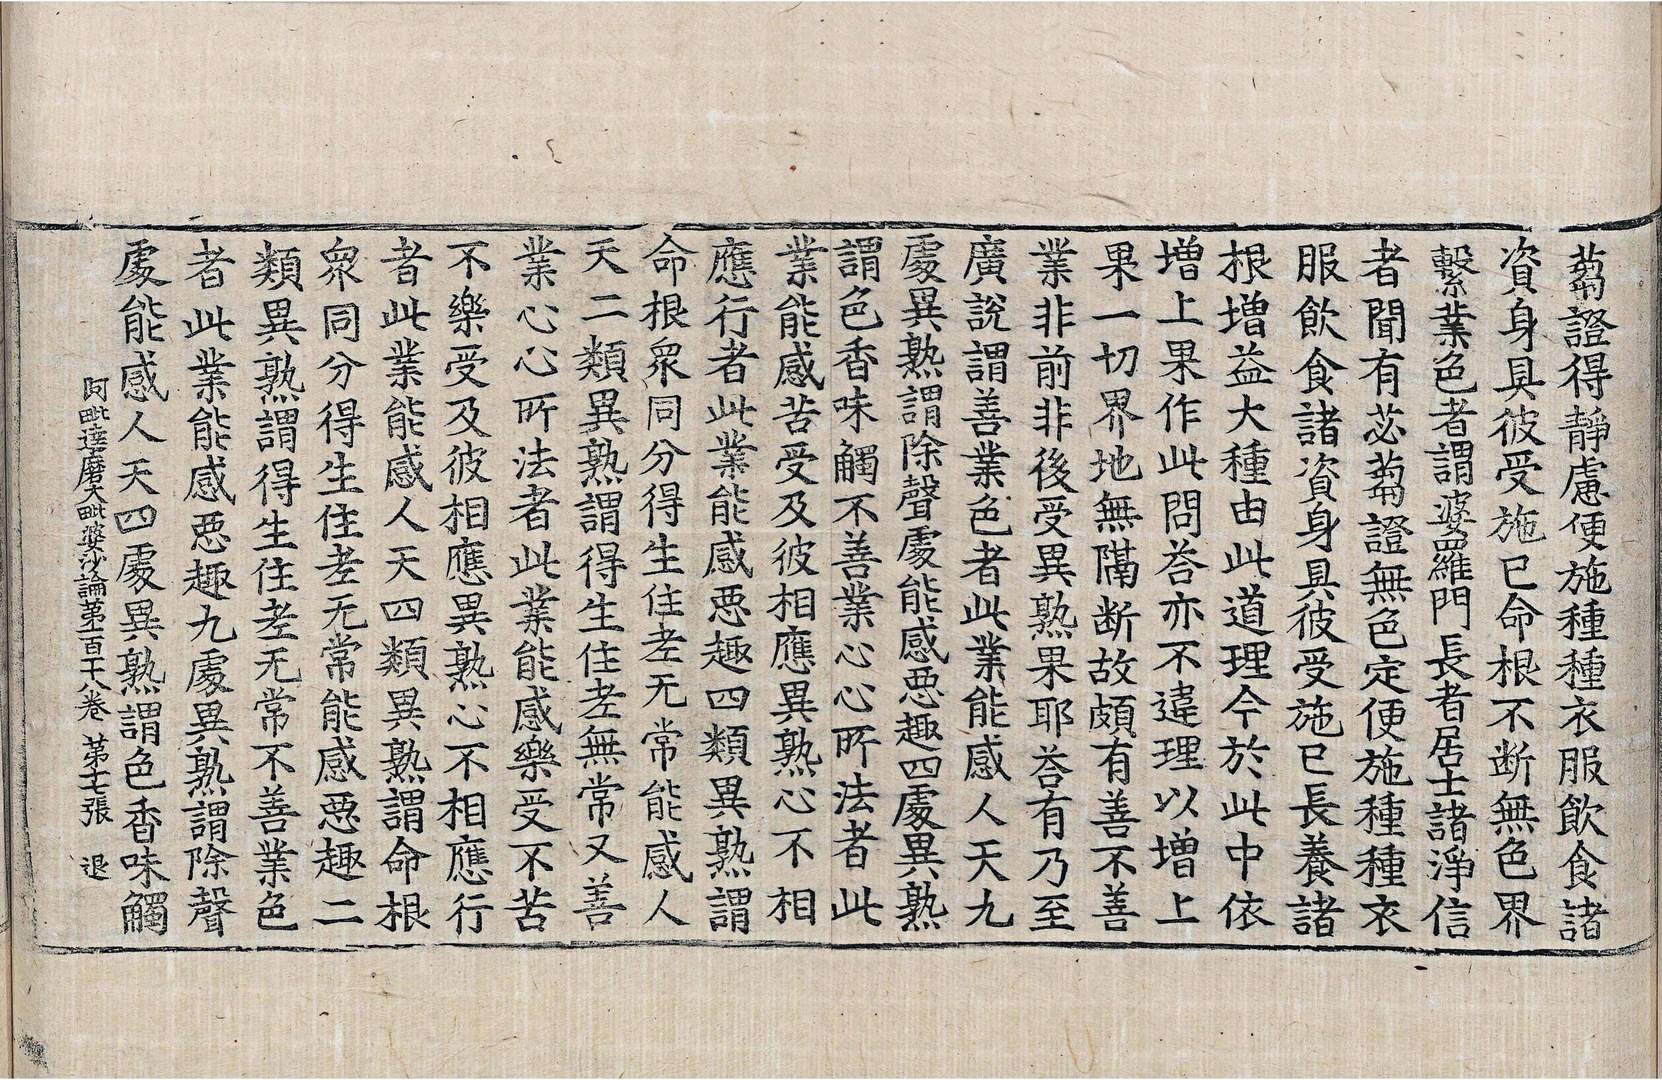 蒭證得靜慮便施種種衣服飲食諸
資身具彼受施已命根不断無色界
繫業色者謂婆羅門長者居士諸淨信
者聞有苾蒭證無色定便施種種衣
服飲食諸資身具彼受施已長養諸
根增益大種由此道理今於此中依
增上果作此問荅亦不違理以增上
果一切界地無隔断故頗有善不善
業非前非後受異熟果耶荅有乃至
廣說謂善業色者此業能感人天九
處異熟謂除聲處能感惡趣四處異熟
謂色香味觸不善業心心所法者此
業能感苦受及彼相應異熟心不相
應行者此業能感惡趣四類異熟謂
命根衆同分得生住老无常能感人
天二類異熟謂得生住老無常又善
業心心所法者此業能感樂受不苦
不樂受及彼相應異熟心不相應行
者此業能感人天四類異熟謂命根
衆同分得生住老无常能感惡趣二
類異熟謂得生住老无常不善業色
者此業能感惡趣九處異熟謂除聲
處能感人天四處異熟謂色香味觸
阿毗達磨大毗婆沙論第一百十八卷 第七張 退